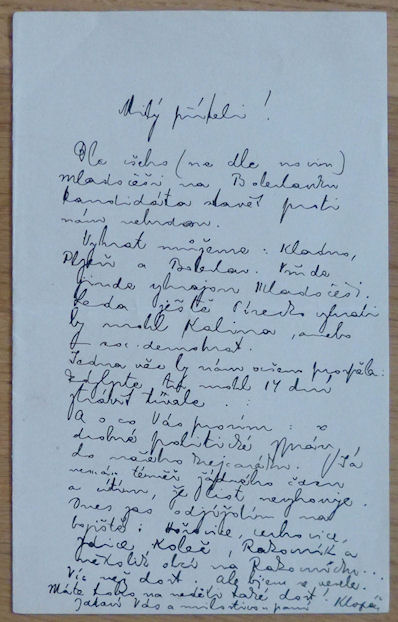 Milý příteli!
Dle všeho (ne dle novin)
mladočeši na Boleslavsku
kandidáta stavět proti
nám nebudou.
Vyhrát můžeme: Kladno,
Plzeň a Boleslav. Všude
jinde vyhrajou Mladočeši.
Leda ještě Písecko vyhrát
by mohl Kalina, anebo
soc. demokrat.
Jedna věc by nám ovšem prospěla:
kdybyste mohl 14 dní
trávit
A o co Vás prosím:
drobné politické zpráv
do našeho. (Já
nemám téměř žádného času
a cítím, že list nevyhovuje.
Dnes zas odjíždím na
bojiště: Hořovice,
Zdice, Koleč, Rakovník a
několik obcí na Rakovnicku...
Víc než dost. Ale bijem se vesele.
Máte toho na neděli také dost!
Zdraví Vás a milostivou paní Klofáč